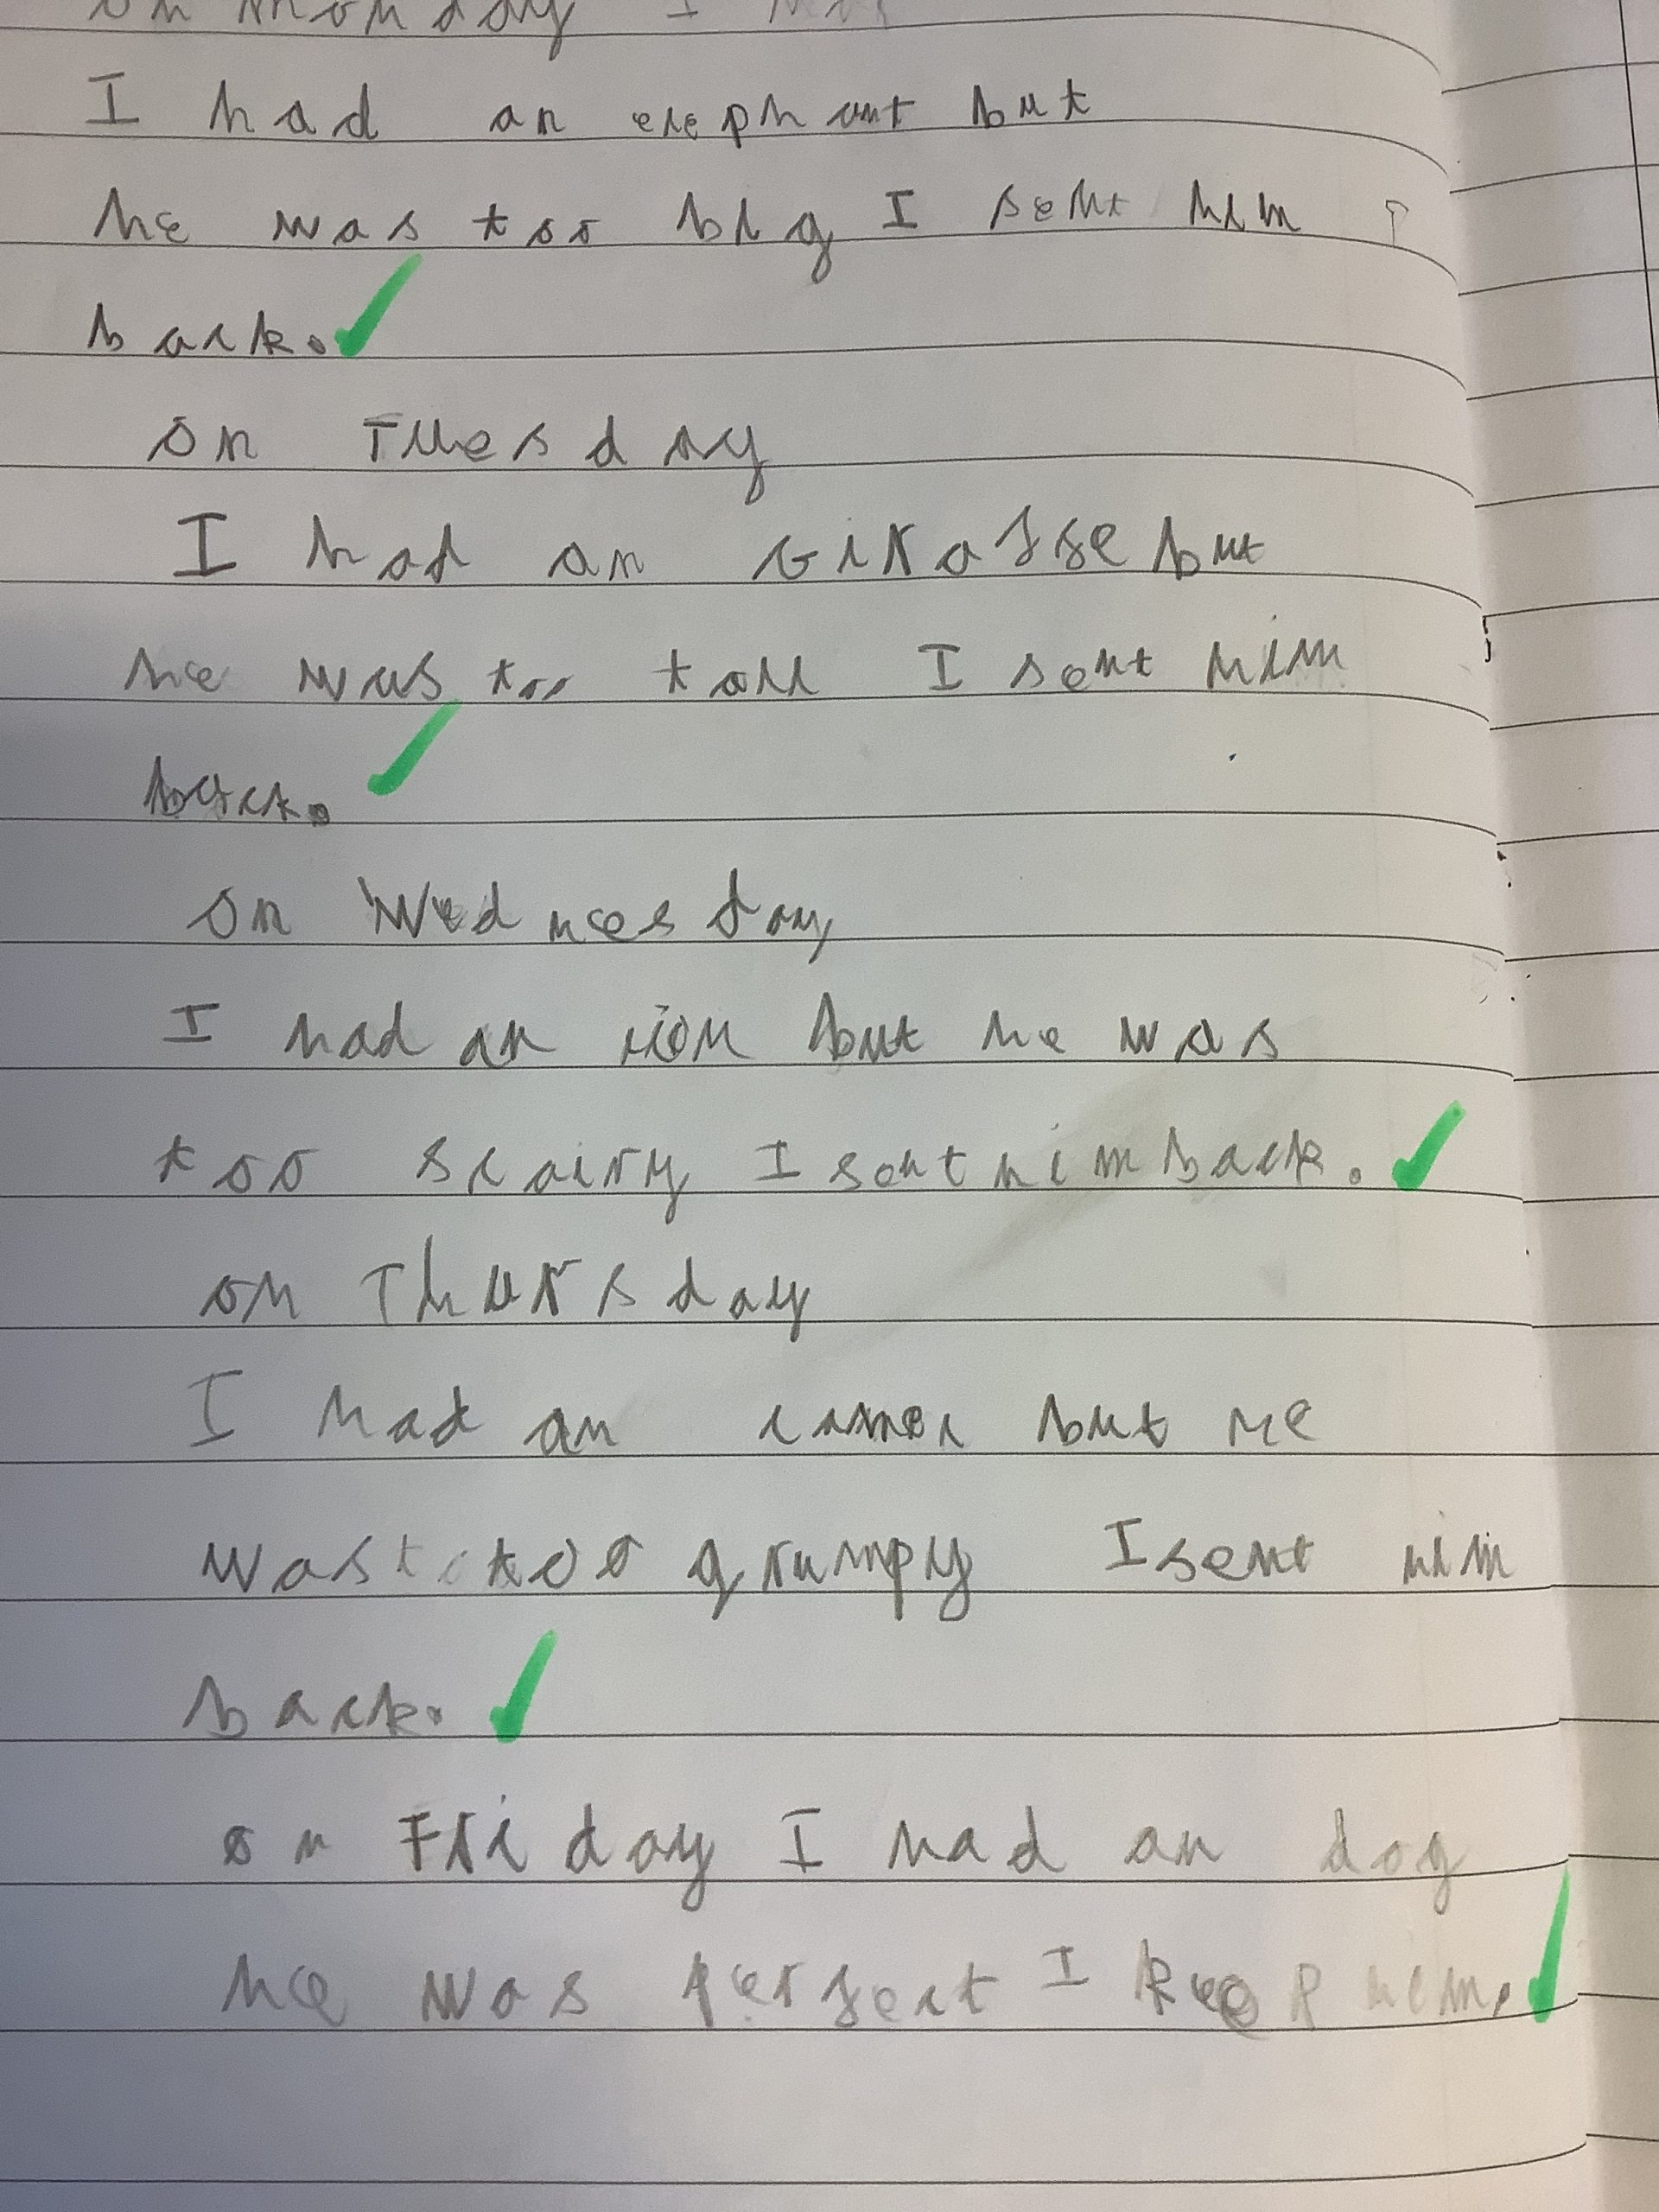 on monday I
I had an elephant but
he was too big I sent him
back.
on Tuesday
I had an Giraffe but
he was too tall I sent him
back.
on Wednesday
I had an lion but he was
too scairy I sent him back.
on Thursday
I had an camel but he
was too grumpy I sent him
back.
on Friday I had an dog
he was perfect I keep him.